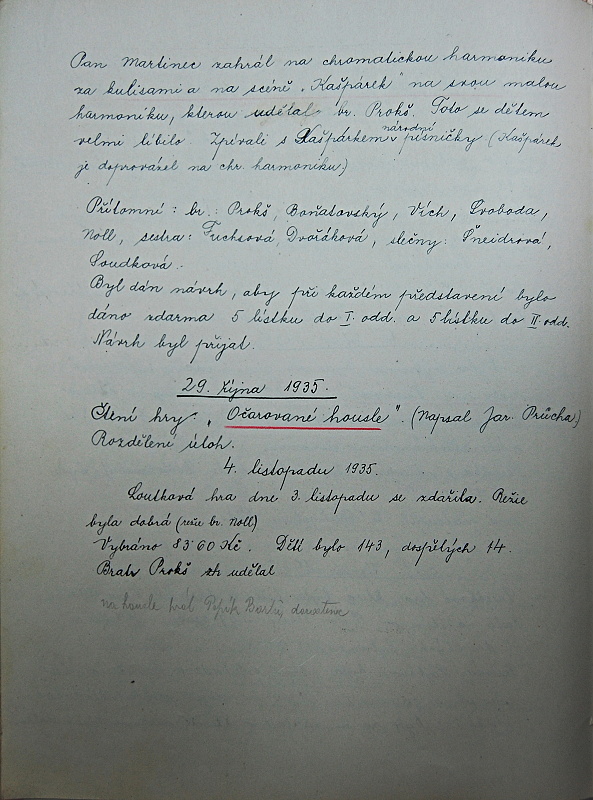 Pan Martinec zahrál na chromatickou harmoniku
za kulisami a na scéně „Kašpárek" na svou malou
harmoniku, kterou udělal br. Prokš. Toto se dětem
velmi líbilo. Zpívali s Kašpárkem národní písničky (Kašpárek
je doprovázel na chr. harmoniku.)
Přítomni: br.: Prokš, Boňatovský, Vích, Svoboda,
Noll, sestra: Fuchsová, Dvořáková, slečny: Šneidrová,
Soudková.
Byl dán návrh, aby při každém představení bylo
dáno zdarma 5 lístku do I. odd. a 5 lístku do II. odd.
Návrh byl přijat.
29. října 1935.
Čtení hry: „Očarované housle". (Napsal Jar. Průcha)
Rozdělení úloh.
4. listopadu 1935.
Loutková hra dne 3. listopadu se zdařila. Režie
byla dobrá (režie br. Noll)
Vybráno 83·60 Kč. Dětí bylo 143, dospělých 14.
Bratr Prokš udělal
na housle hrál Pepík